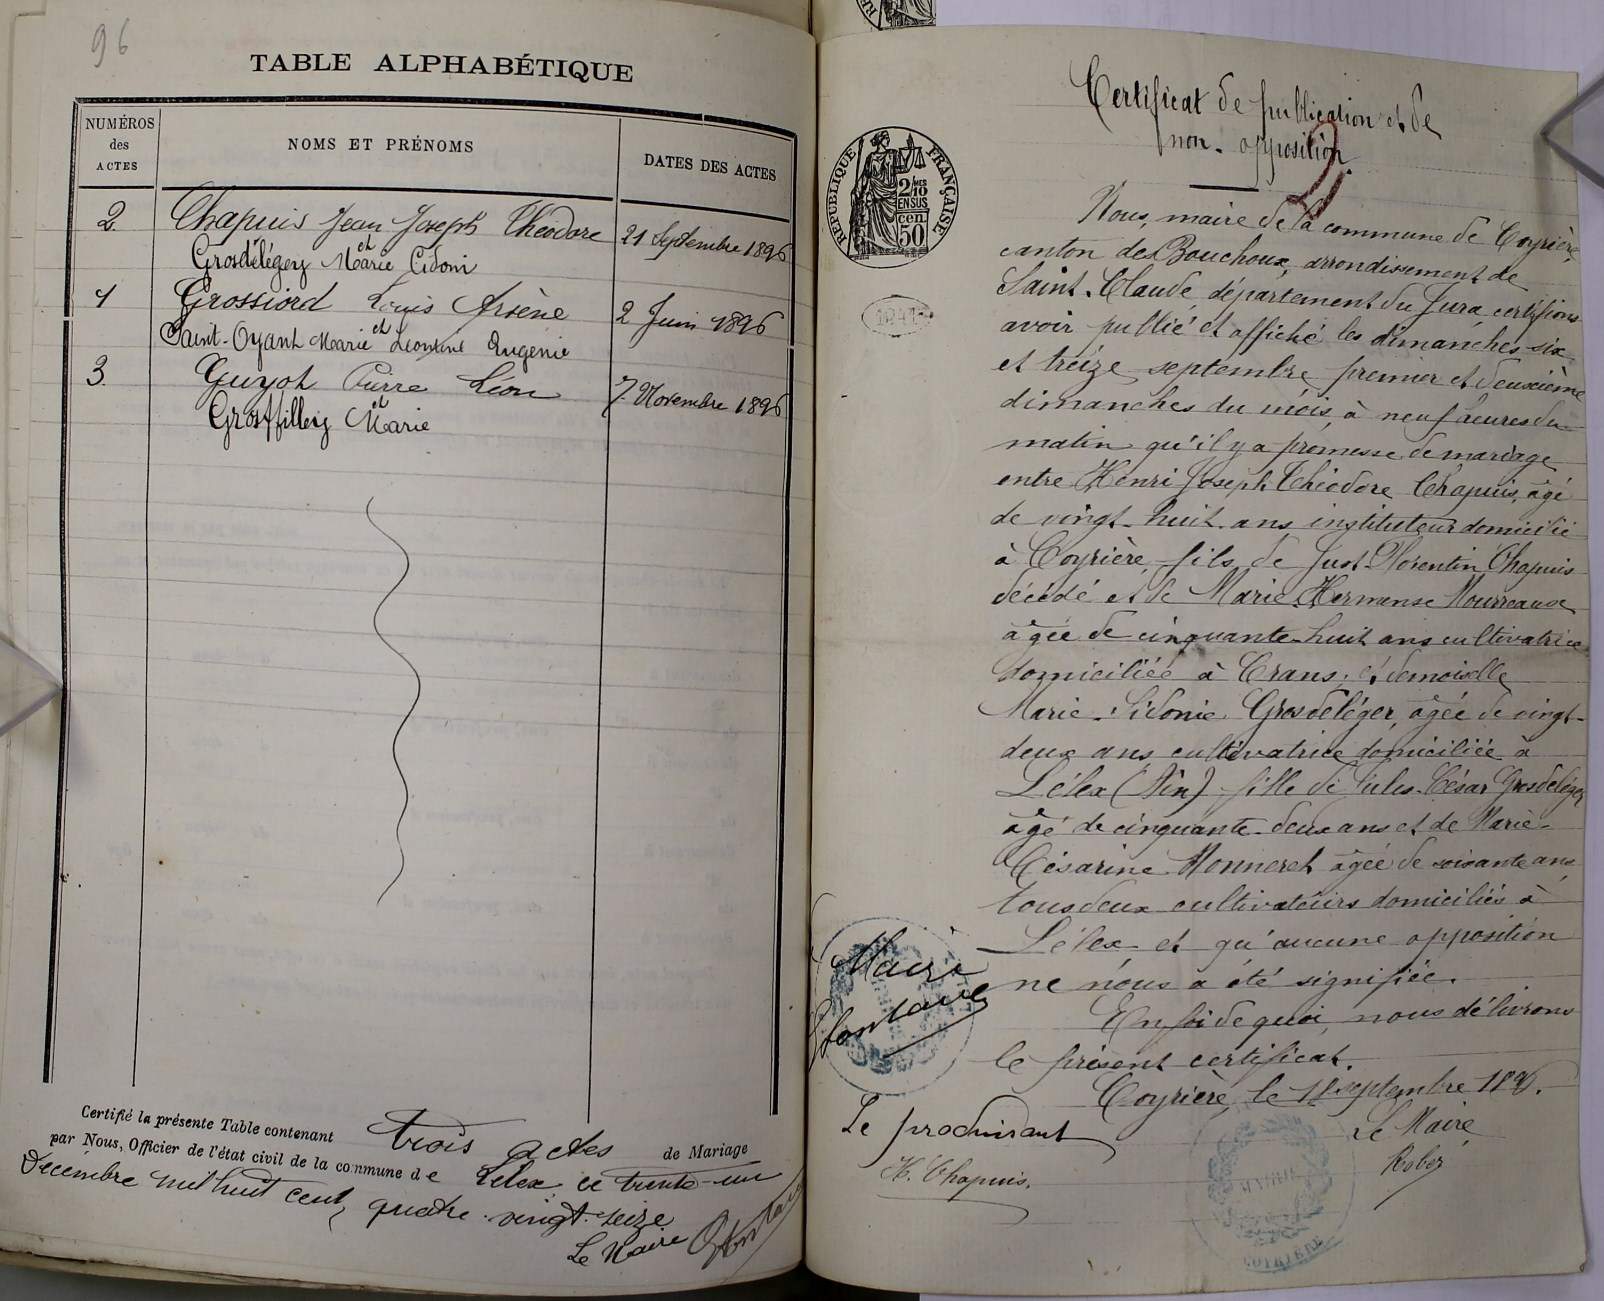 96
TABLE ALPHABÉTIQUE
NUMÉROS
des
ACTES
NOMS ET PRÉNOMS
DATES DES ACTES
2. Chapuis Jean Joseph Théodore 21 Septembre 1896
et
Grosdélégery Marie Cidoni
1 Grossiord Louis Arsène 2 Juin 1896
et
Saint-Oyant Marie Léontine Eugénie
3. Guyot Pierre Léon 7 Novembre 1896
et
Grosfilley Marie
Certifié la présente Table contenant trois actes de Mariage
par Nous, Officier de l'état civil de la commune de Lélex ce trente-un
Décembre mil huit cent quatre-vingt-seize
Le Maire
RÉPUBLIQUE FRANÇAISE
2/10 MES
EN SUS
50 cen
Certificat de publication et de
non-opposition.
2
Nous, maire de la commune de Coyrière,
canton des Bouchoux, arrondissement de
Saint-Claude, département du Jura, certifions
avoir publié et affiché les dimanches six
et treize septembre, premier et deuxième
dimanches du mois, à neuf heures du
matin qu'il y a promesse de mariage
entre Henri Joseph Théodore Chapuis, âgé
de vingt-huit ans instituteur domicilié
à Coyrière, fils de Just-Florentin Chapuis
décédé et de Marie-Hermense Mourreaux
âgée de cinquante-huit ans cultivatrice
domiciliée à Crans; et demoiselle
Marie-Sidonie Grosdeléger, âgée de vingt-
deux ans cultivatrice domiciliée à
Lélex (Ain) fille de Jules-César Grosdeléger
âgé de cinquante-deux ans et de Marie-
Césarine Monneret âgée de soixante ans
tous deux cultivateurs domiciliés à
Lélex et qu'aucune opposition
ne nous a été signifiée.
En foi de quoi, nous délivrons
le présent certificat.
Coyrière, le 18 septembre 1896.
Maire
Le produisant
H. Chapuis.
Le Maire
Robez
MAIRIE
COYRIÈRE